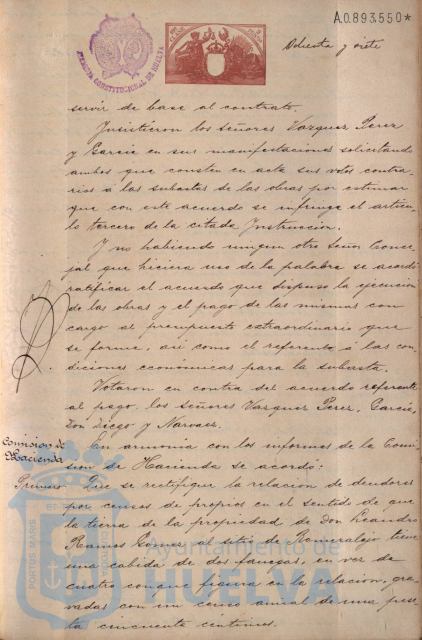 A.0.893.550*
Ochenta y siete
servir de base al contrato.
Insistieron los señores Vazquez Perez
y García en sus manifestaciones solicitando
ambos que consten en acta sus votos contra-
rios á las subastas de las obras por estimar
que con este acuerdo se infringe el artícu-
lo tercero de la citada Instrucción.
Y no habiendo ningun otro Señor Conce-
jal que hiciera uso de la palabra se acordó
ratificar el acuerdo que dispuso la ejecución
de las obras y el pago de las mismas con
cargo al presupuesto extraordinario que
se forme, así como el referente á las con-
diciones económicas para la subasta.
Votaron en contra del acuerdo referente
al pago, los señores Vazquez Perez, García,
Don Diego y Narvaez.
Comision de
Hacienda
En armonía con los informes de la Comi-
sion de Hacienda se acordó:
Primero: Que se rectifique la relacion de deudores
por censos de propios en el sentido de que
la tierra de la propiedad de Don Leandro
Ramos Gomez al sitio de Romeralejo tiene
una cabida de dos fanegas, en vez de
cuatro como figura en la relacion, gra-
vadas con un censo anual de una pese-
ta cincuenta centimos.
Ayuntamiento de
HUELVA
PORTUS MARIS